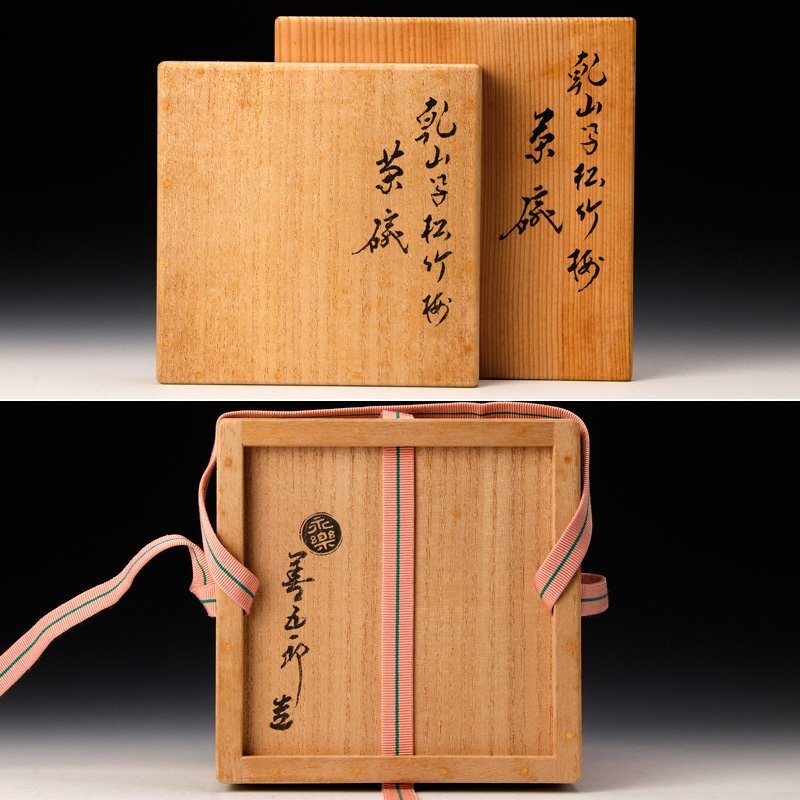 乾山写松竹梅
茶碗
乾山写松竹梅
茶碗
永樂
善五郎
造